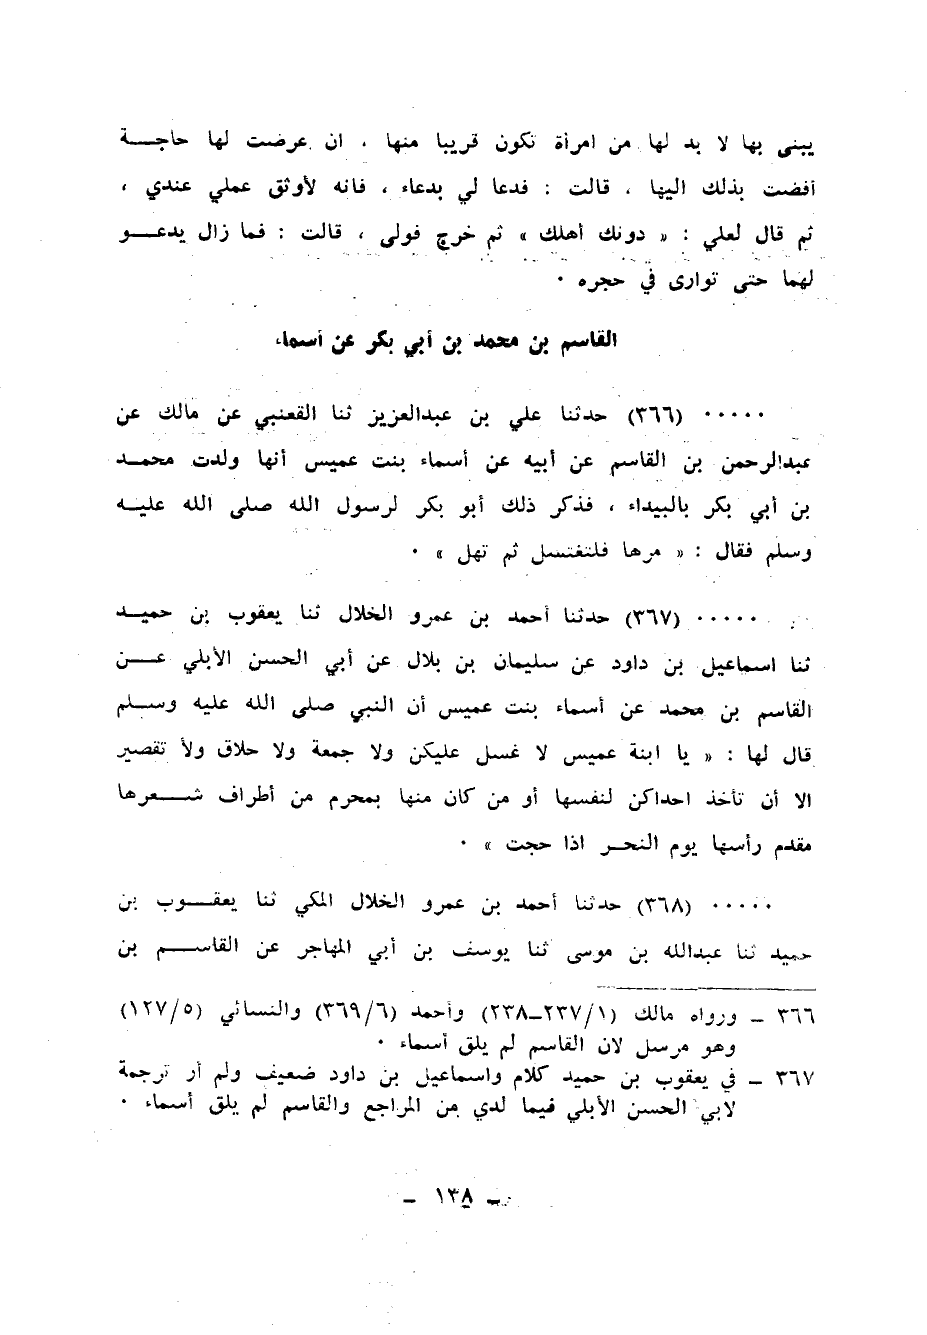 يبنى بها لا بد لها من امرأة تكون قريبا منها ، ان عرضت لها حاجة
أفضت بذلك اليها ، قالت : فدعا لي بدعاء ، فانه لأوثق عملي عندي ،
ثم قال لعلي : « دونك أهلك » ثم خرج فولى ، قالت : فما زال يدعو
لهما حتى توارى في حجره ٠
القاسم بن محمد بن أبي بكر عن أسماء
٠٠٠٠٠ (٣٦٦) حدثنا علي بن عبدالعزيز ثنا القعنبي عن مالك عن
عبدالرحمن بن القاسم عن أبيه عن أسماء بنت عميس أنها ولدت محمد
بن أبي بكر بالبيداء ، فذكر ذلك أبو بكر لرسول الله صلى الله عليه
وسلم فقال : « مرها فلتغتسل ثم تهل » ٠
٠٠٠٠٠ (٣٦٧) حدثنا أحمد بن عمرو الخلال ثنا يعقوب بن حميد
ثنا اسماعيل بن داود عن سليمان بن بلال عن أبي الحسن الأبلي عن
القاسم بن محمد عن أسماء بنت عميس أن النبي صلى الله عليه وسلم
قال لها : « يا ابنة عميس لا غسل عليكن ولا جمعة ولا حلاق ولا تقصير
الا أن تأخذ احداكن لنفسها أو من كان منها بمحرم من أطراف شعرها
مقدم رأسها يوم النحر اذا حجت » ٠
٠٠٠٠٠ (٣٦٨) حدثنا أحمد بن عمرو الخلال المكي ثنا يعقوب بن
حميد ثنا عبدالله بن موسى ثنا يوسف بن أبي المهاجر عن القاسم بن
٣٦٦ ــ ورواه مالك (٢٣٧/١ــ٢٣٨) وأحمد (٣٦٩/٦) والنسائي (١٢٧/٥)
وهو مرسل لان القاسم لم يلق أسماء ٠
٣٦٧ ــ في يعقوب بن حميد كلام واسماعيل بن داود ضعيف ولم أر ترجمة
لابي الحسن الأبلي فيما لدي من المراجع والقاسم لم يلق أسماء ٠
ــ ١٣٨ ــ